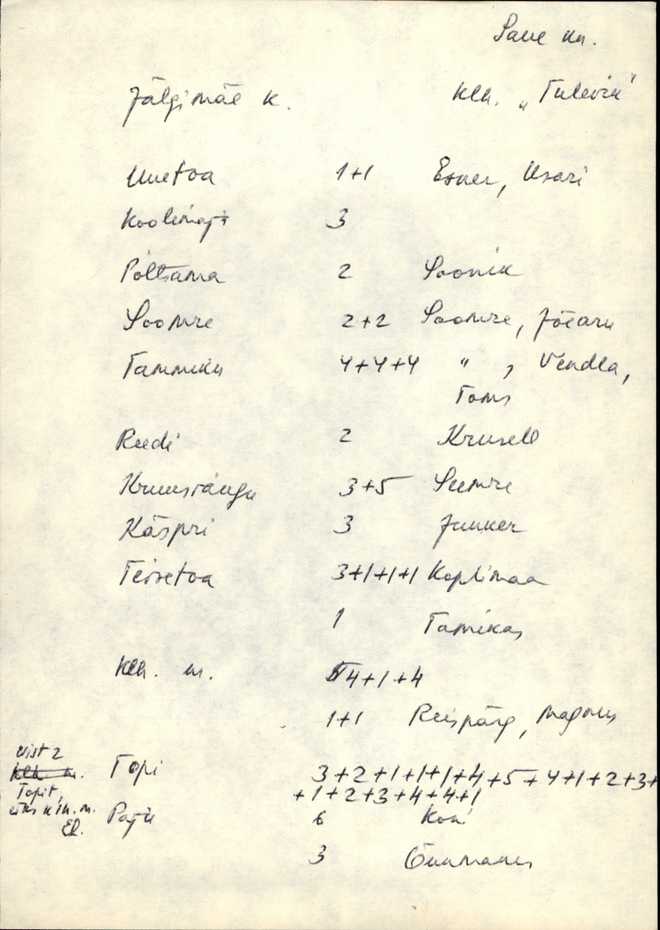 Saue kn.
Jälgimäe k. Klh. „Tulevik"
Uuetoa 1+1 Exner, Usari
Koolimaja 3
Põltsama 2 Soonik
Soomre 2+2 Soomre, Jõearu
Tammiku 4+4+4 " , Vendla,
Toms
Reedi 2 Krusell
Kruusiaugu 3+5 Seemre
Käspri 3 Junker
Teisetoa 3+1+1+1 Koplimaa
1 Tamikas
Klh. m. 4+1+4
1+1 Reispärg, Magnus
vist 2
Topi 3+2+1+1+1+4+5+4+1+2+3+
Topit, +1+2+3+4+4+1
El. Paju 6
3